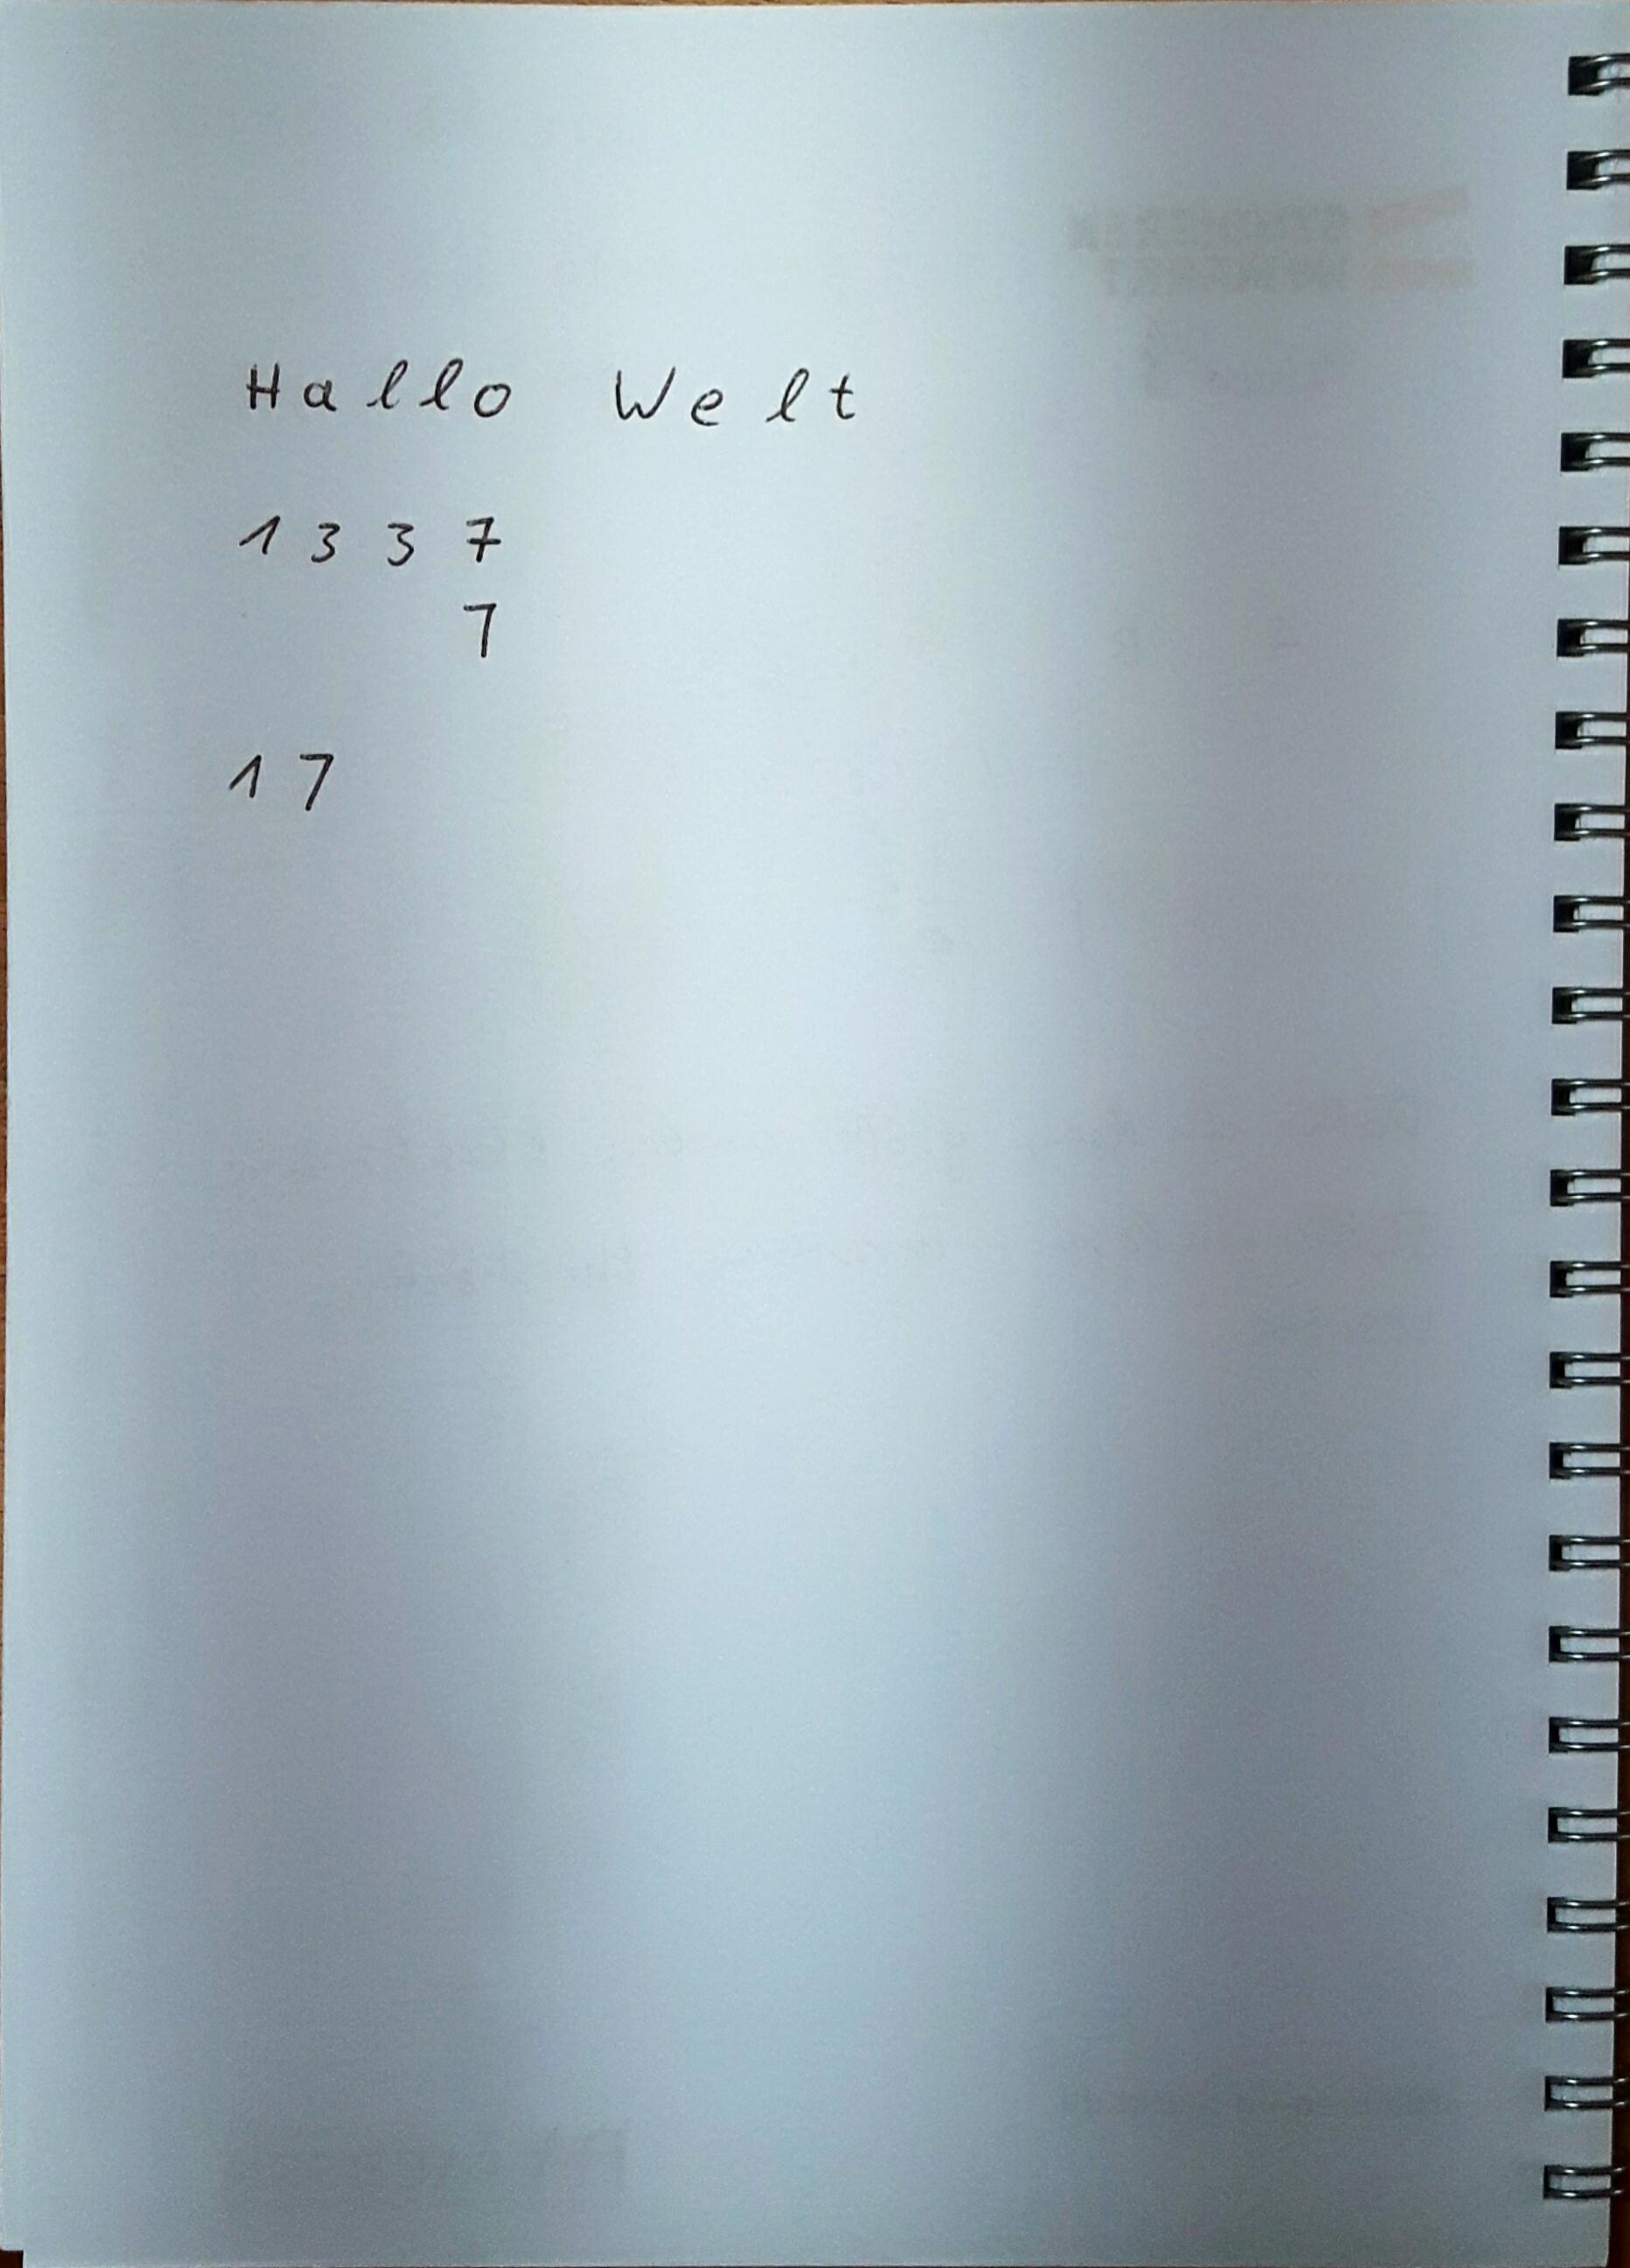 Hallo Welt
1337
7
17